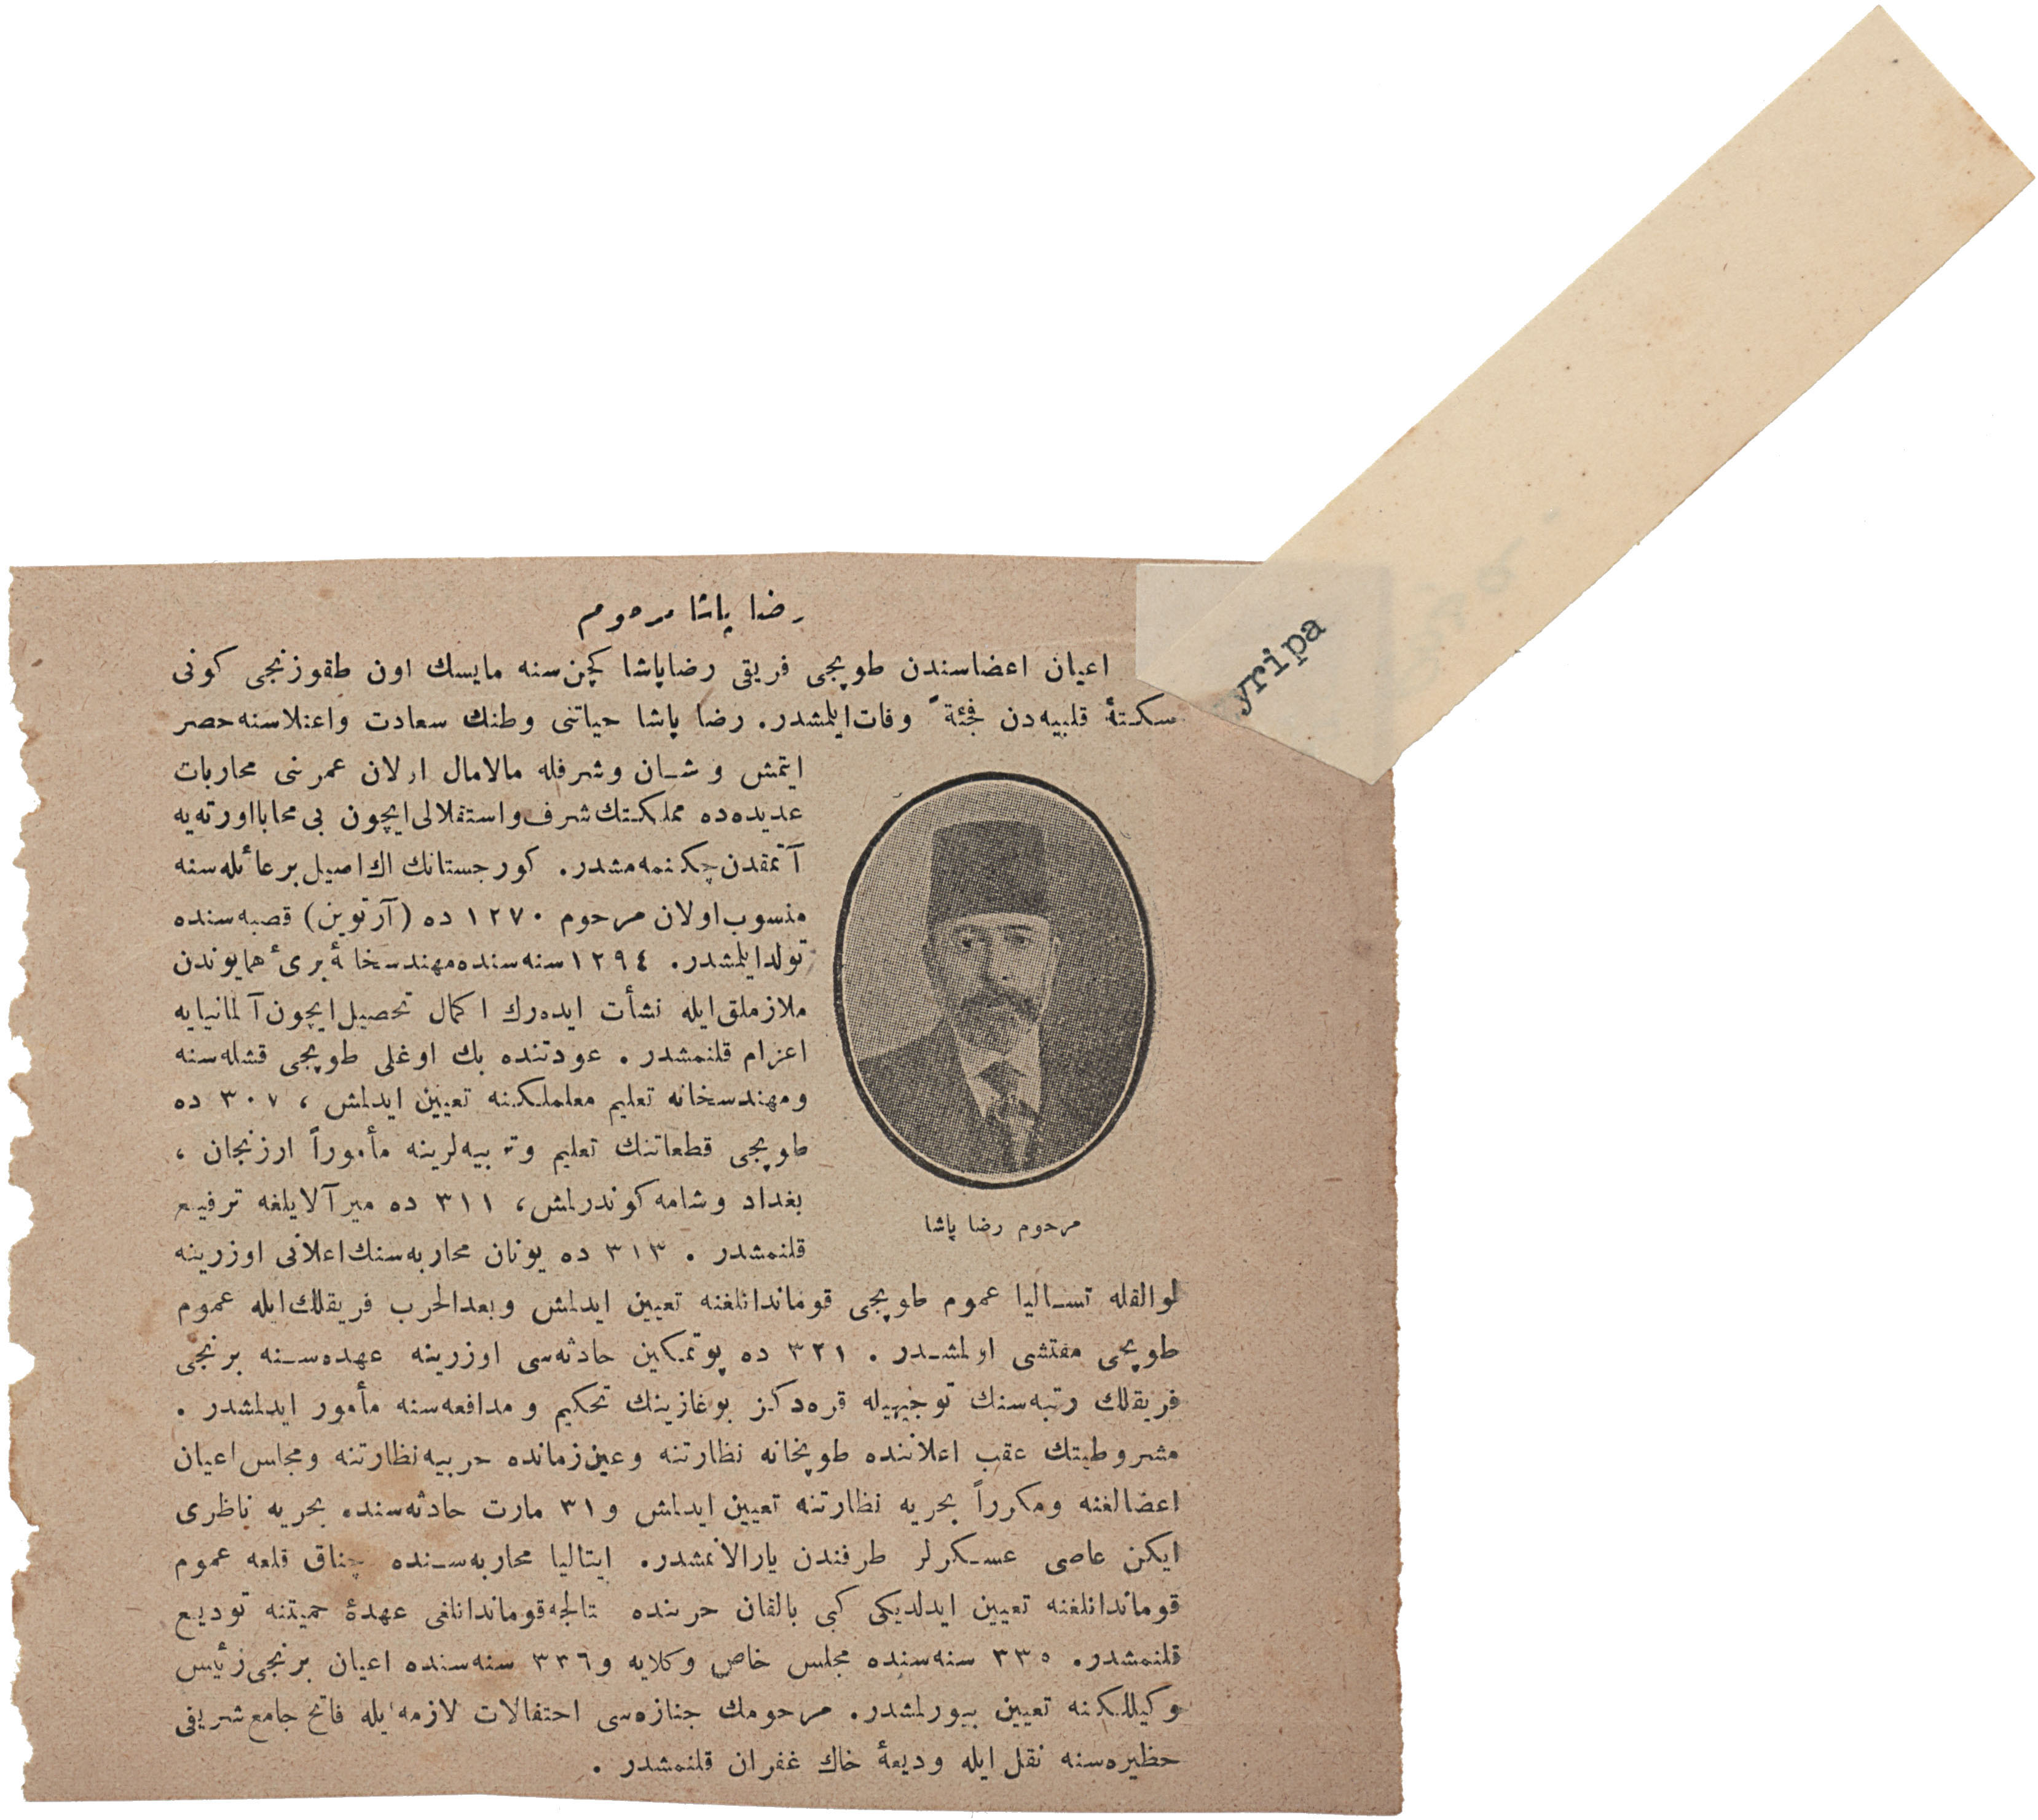 رضا پاشا مرحوم
اعیان اعضاسندن طوپجی فریقی رضا پاشا کچن سنه مایسك اون طقوزنجی کونی
سکتهٔ قلبیه‌دن فجئةً وفات ایلمشدر. رضا پاشا حیاتنی وطنك سعادت واعتلاسنه حصر
ایتمش وشان وشرفله مالامال اولان عمرنی محاربات
عدیده‌ده مملکتك شرف واستقلالی ایچون بی محابا اورته‌یه
آتمقدن چکنمه‌مشدر. کورجستانك اك اصیل بر عائله‌سنه
منسوب اولان مرحوم ١٢٧٠ ده (آرتوین) قصبه‌سنده
تولد ایلمشدر. ١٢٩٤ سنه‌سنده مهندسخانهٔ بریٔ همایوندن
ملازملق ایله نشأت ایده‌رك اکمال تحصیل ایچون آلمانیایه
اعزام قلنمشدر. عودتنده بك اوغلی طوپجی قشله‌سنه
ومهندسخانه تعلیم معلملکنه تعیین ایدلمش، ٣٠٧ ده
طوپجی قطعاتنك تعلیم وتربیه‌لرینه مأموراً ارزنجان،
بغداد وشامه کوندرلمش، ٣١١ ده میرآلایلغه ترفیع
قلنمشدر. ٣١٣ ده یونان محاربه‌سنك اعلانی اوزرینه
لوالقله تسالیا عموم طوپجی قوماندانلغنه تعیین ایدلمش وبعدالحرب فریقلك ایله عموم
طوپجی مفتشی اولمشدر. ٣٢١ ده پوتمکین حادثه‌سی اوزرینه عهده‌سنه برنجی
فریقلك رتبه‌سنك توجیهیله قره‌دکز بوغازینك تحکیم ومدافعه‌سنه مأمور ایدلمشدر.
مشروطیتك عقب اعلاننده طوپخانه نظارتنه وعین زمانده حربیه نظارتنه ومجلس اعیان
اعضالغنه ومکرراً بحریه نظارتنه تعیین ایدلمش و٣١ مارت حادثه‌سنده بحریه ناظری
ایکن عاصی عسکرلر طرفندن یارالانمشدر. ایتالیا محاربه‌سنده چناق قلعه عموم
قوماندانلغنه تعیین ایدلدیکی کبی بالقان حربنده چتالجه قوماندانلغی عهدهٔ حمیتنه تودیع
قلنمشدر. ٣٣٥ سنه‌سنده مجلس خاص وکلایه و٣٣٦ سنه‌سنده اعیان برنجی رئیس
وکیللکنه تعیین بیورلمشدر. مرحومك جنازه‌سی احتفالات لازمه ایله فاتح جامع شریفی
حظیره‌سنه نقل ایله ودیعهٔ خاك غفران قلنمشدر.
مرحوم رضا پاشا
yripa